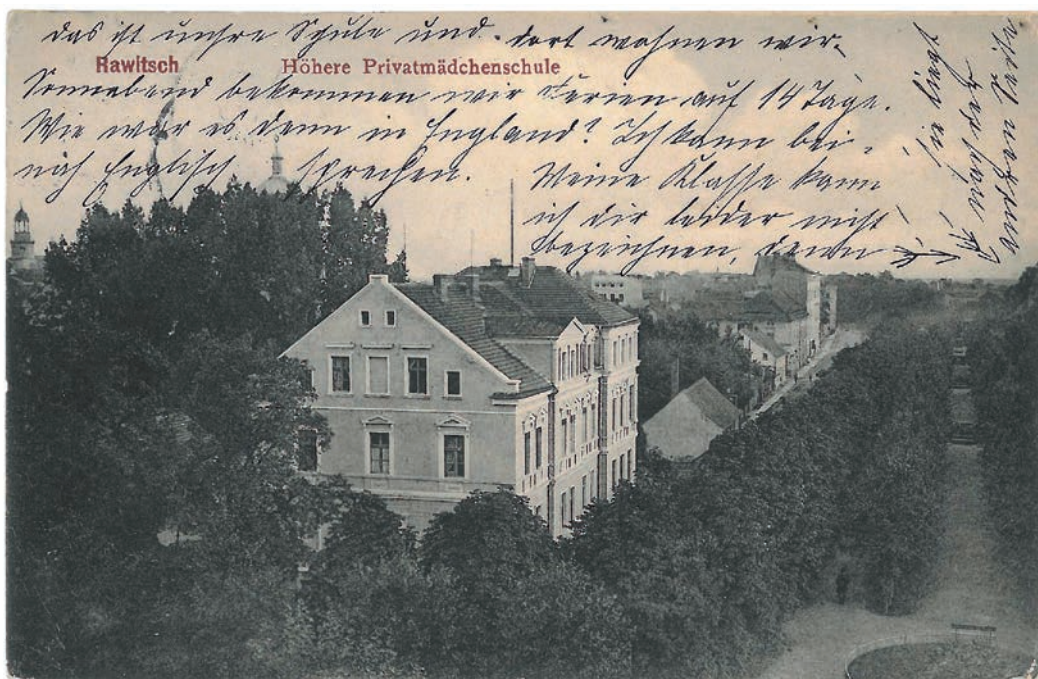 das ist unsre Schule und dort wohnen wir.
Rawitsch Höhere Privatmädchenschule
Sonnabend bekommen wir Ferien auf 14 Tage.
Wie war es denn in England? Ich kann bei-
nah Englisch sprechen. Meine Klasse kann
ich dir leider nicht
bezeichnen, denn
sie liegt
nach der
andren Seite